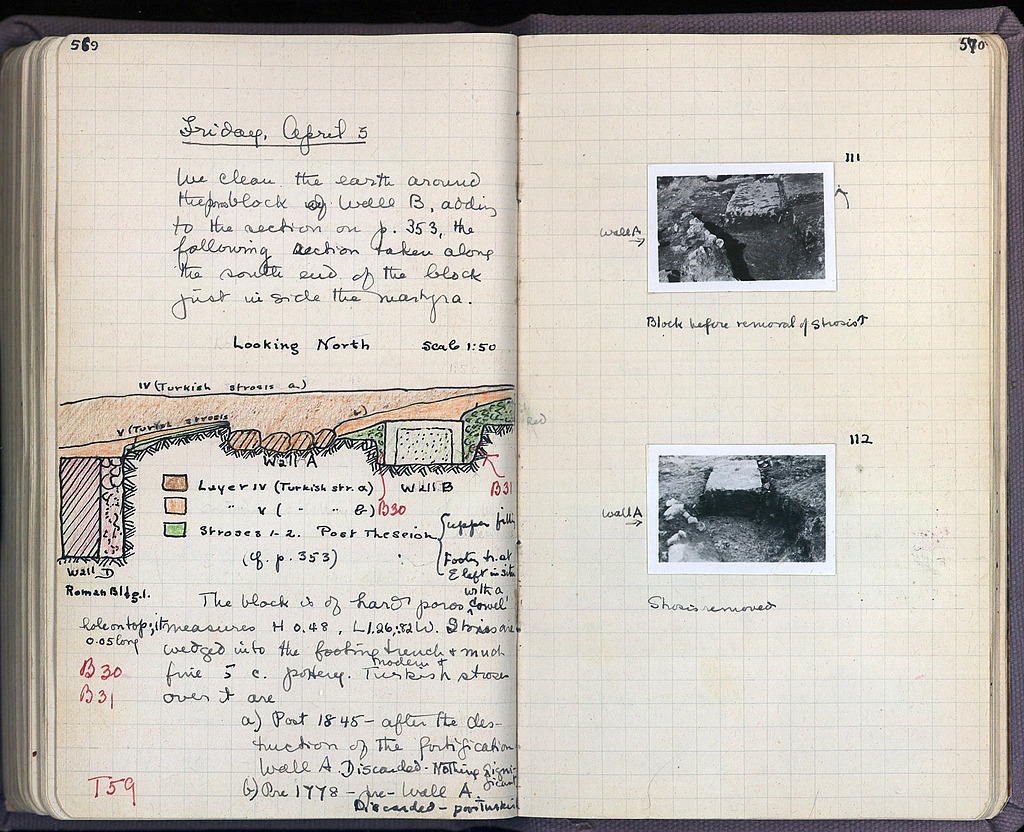 569
Friday, April 5
We clean the earth around
the poros block of Wall B, adding
to the section on p. 353, the
following section taken along
the south end of the block
just inside the martyra.
Looking North Scale 1:50
IV (Turkish strosis a)
V (Turkish strosis b)
Wall A
Wall B
B31
B30
Layer IV (Turkish str. a)
" V ( " " b)
Stroses 1-2. Post Theseion
(cf. p. 353)
{upper fill
Footing tr. at
E left in situ
Wall D
Roman Bldg. 1.
The block is of hard poros with a dowel
hole on top; it measures H 0.48, L 1.26, .82 W. Stones are
0.05 long
wedged into the footing trench & much
B30
fine 5 c. pottery. Modern & Turkish stroses
B31
over it are
a) Post 1845 - after the des-
truction of the fortification
Wall A. Discarded - Nothing signi-
ficant
b) Pre 1778 - pre-Wall A.
Discarded -
T59
570
111
Wall A
→
↑
Block before removal of strosis ↑
112
Wall A
→
Strosis removed